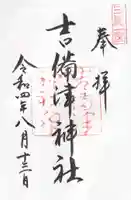 奉拝
吉備津神社
令和四年八月十三日